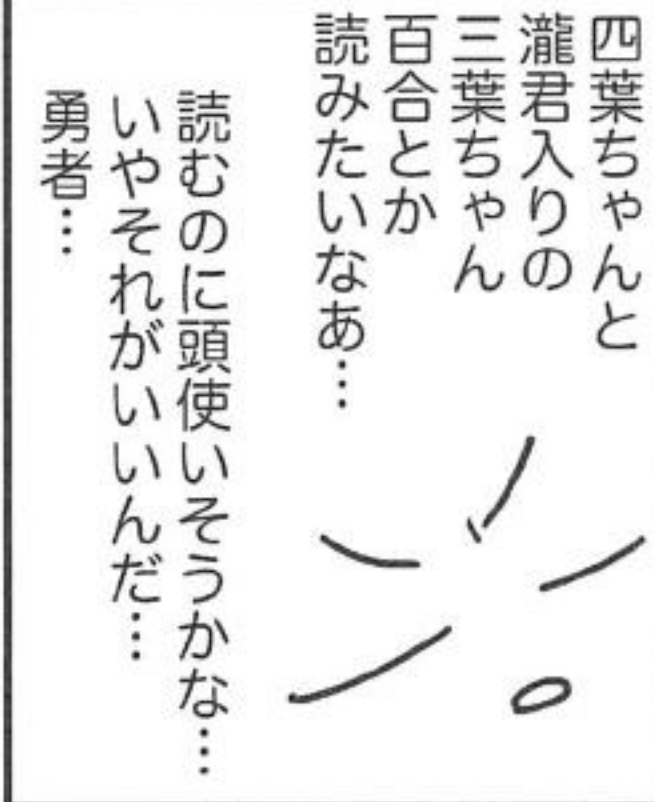 四葉ちゃんと
瀧君入りの
三葉ちゃん
百合とか
読みたいなあ…
読むのに頭使いそうかな…
いやそれがいいんだ…
勇者…